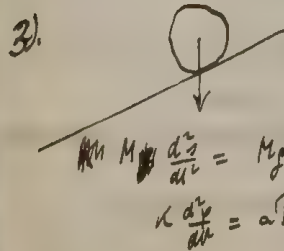 3).
M d²s/dt² = Mg
κ d²φ/dt² = a